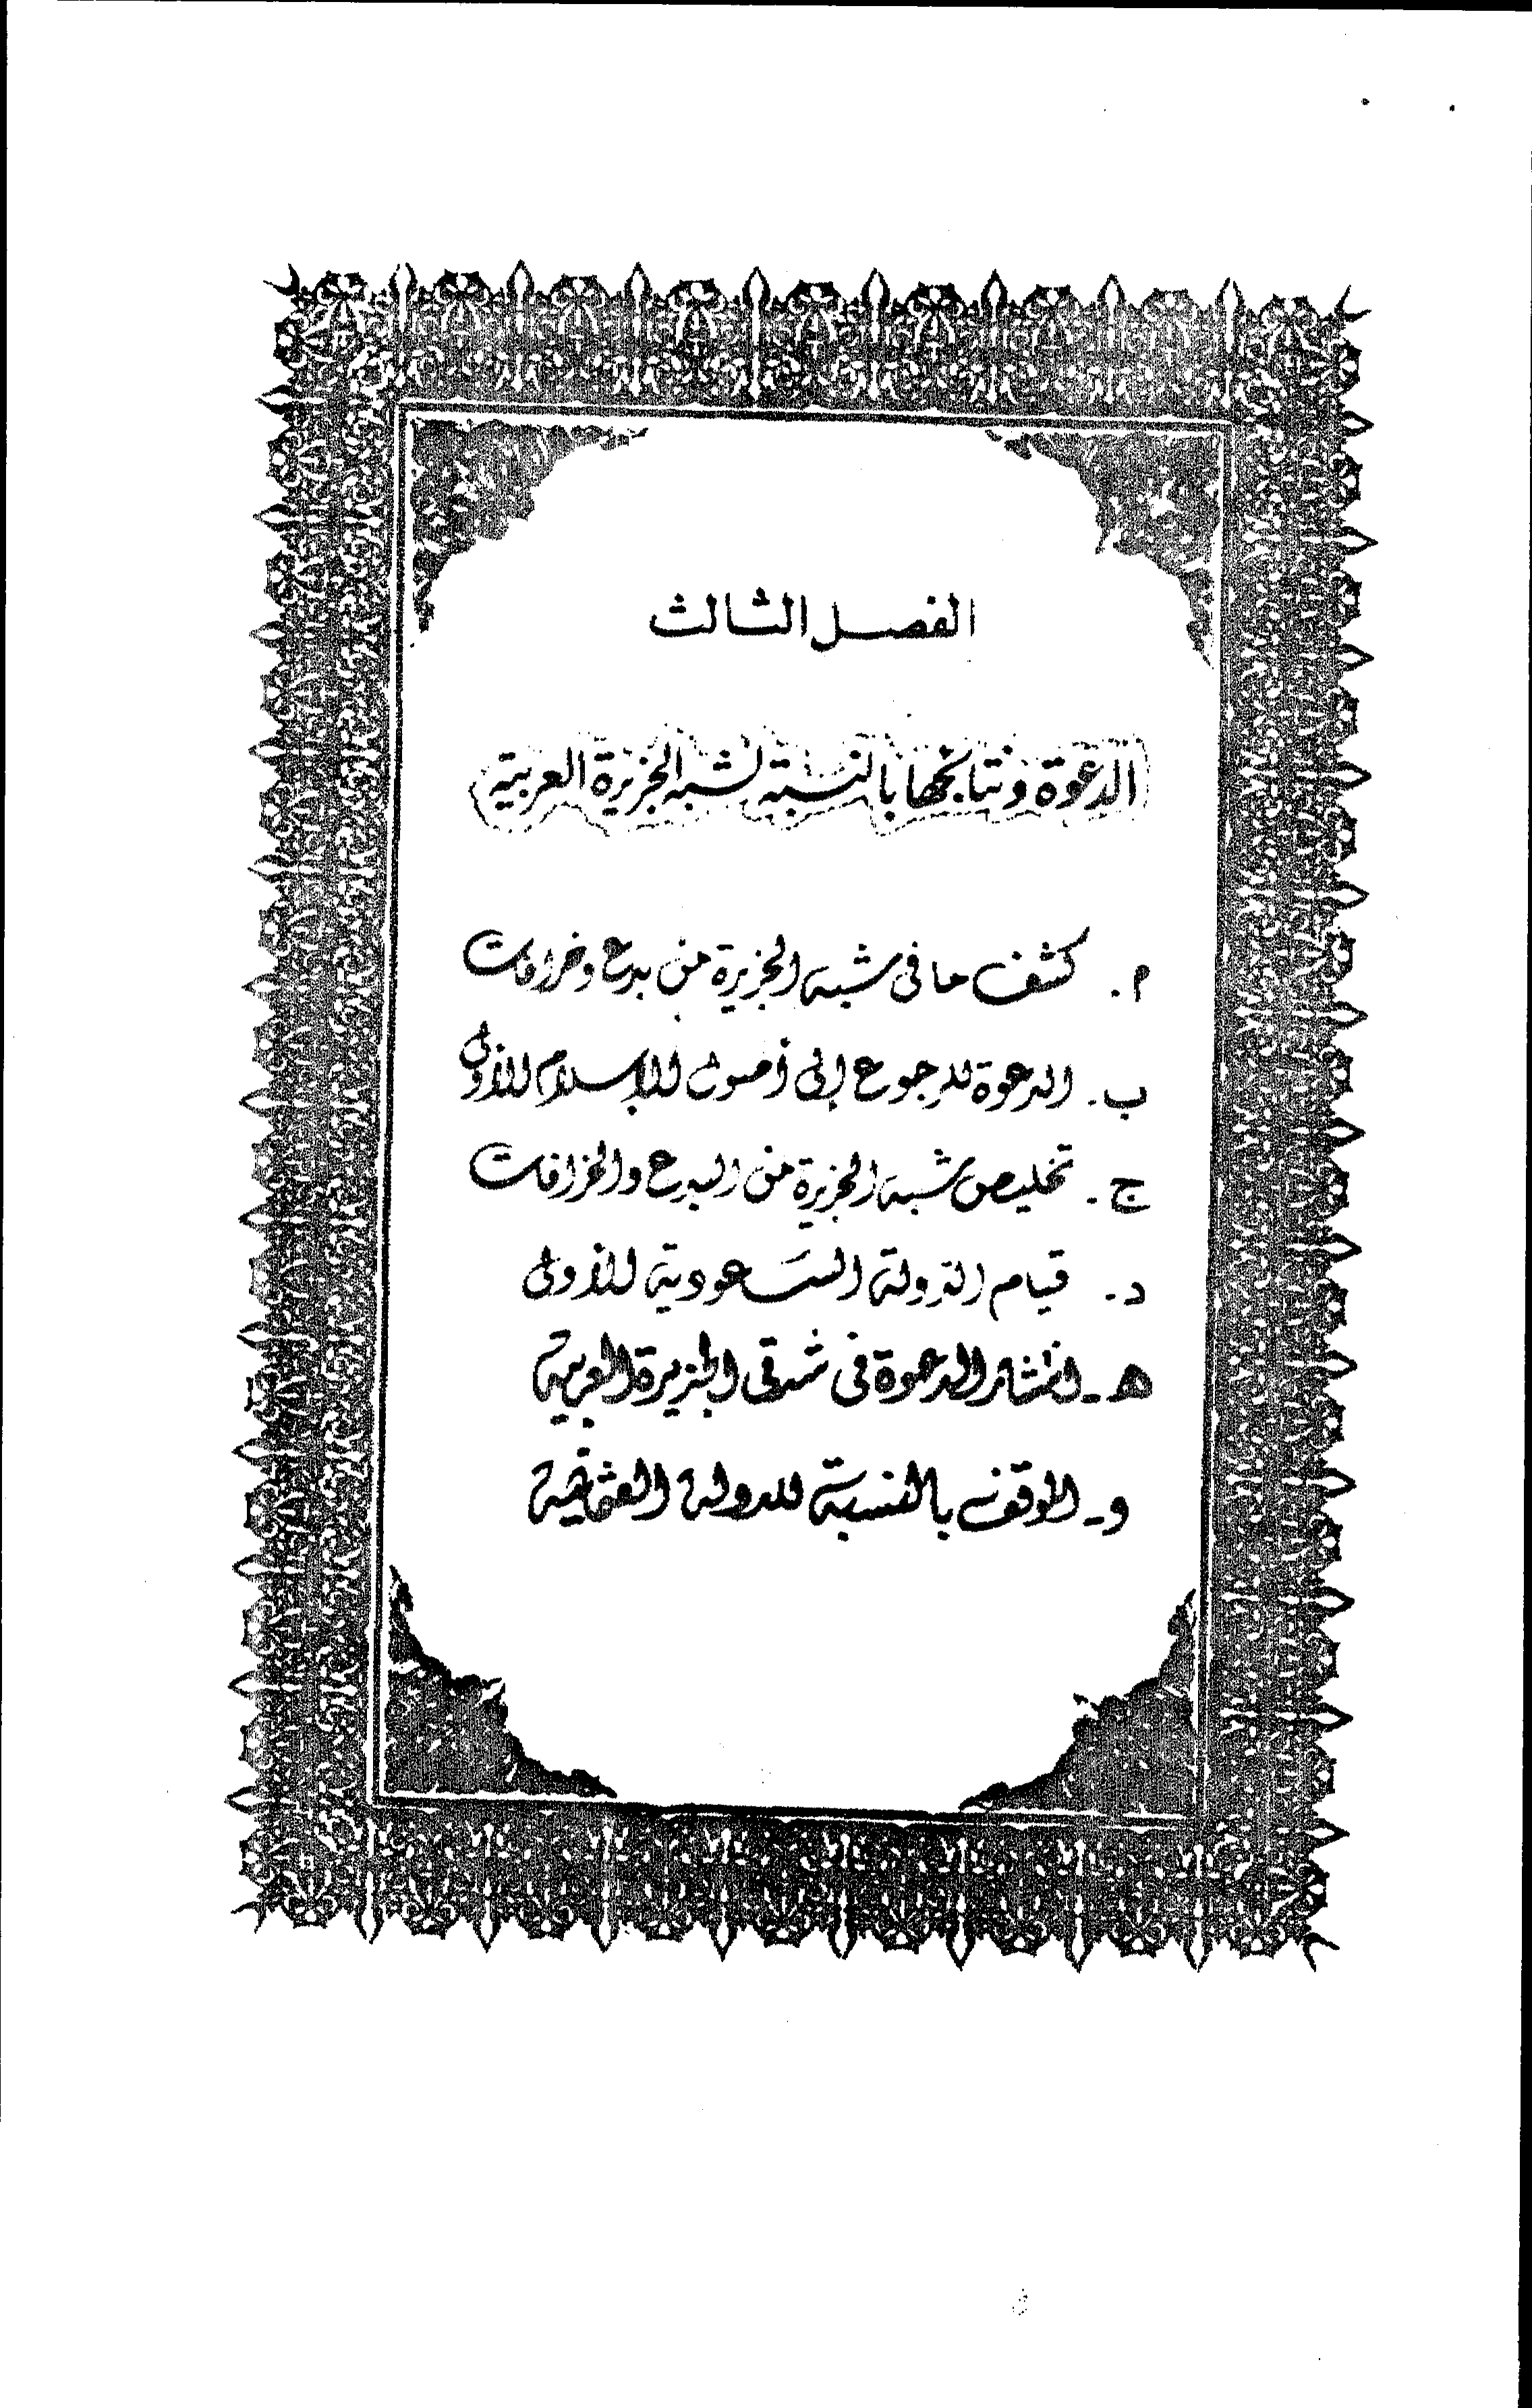 الفصل الثالث
الدعوة ونتائجها بالنسبة لشبه الجزيرة العربية
م. كشف ما فى شبه الجزيرة من بدع وخرافات
ب. الدعوة للرجوع إلى أصول الإسلام الأولى
ج. تخليص شبه الجزيرة من البدع والخرافات
د. قيام الدولة السعودية الأولى
هـ - انتشار الدعوة فى شرقى الجزيرة العربية
و - الموقف بالنسبة للدولة العثمانية